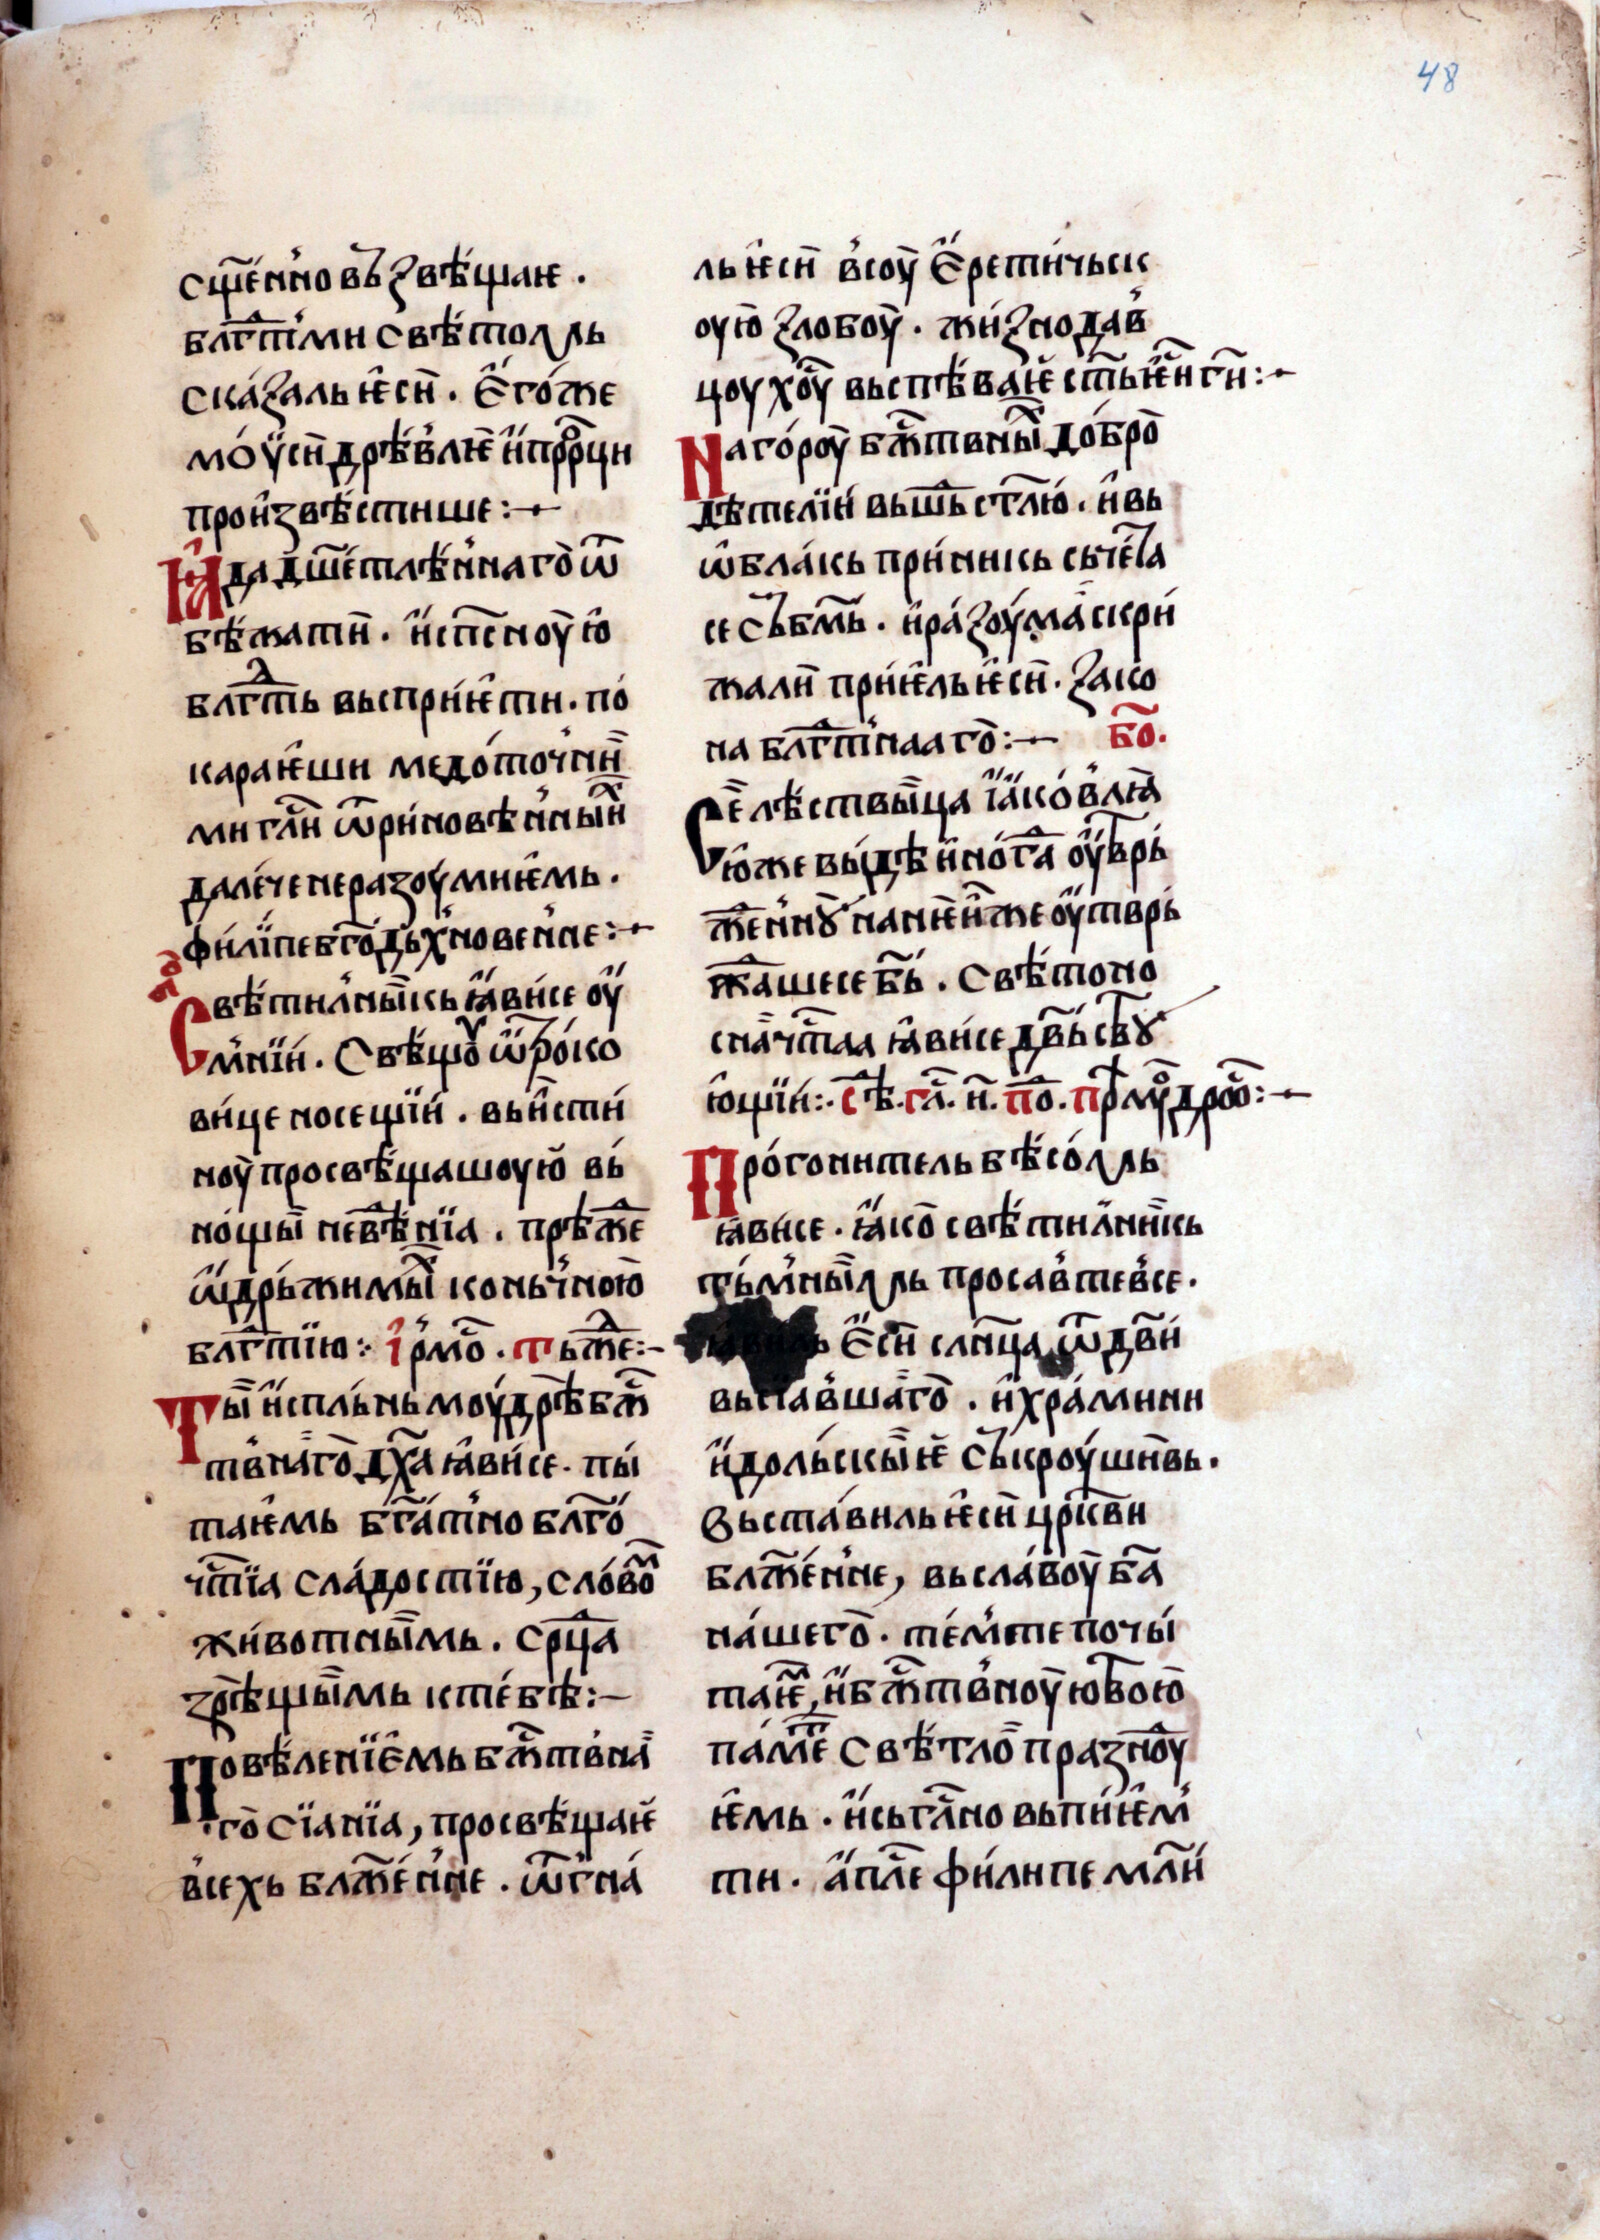 48
сщ҃е́нно въ звѣ́щаѥ .
блг҃ті́ми свѣ́томь
ска́заль ѥ҆сѝ . є҆го́же
мо́ѵ̈сѝ дрѣ́влѥ ѝ прⷪ҇рци
прои҆звѣ́стише :~
И҆ да дш҃етлѣ́ннаго ѿ
бѣ́жати̏ . и҆ сп҃сноую҆
блгⷣть въспрїѥ҆ти . по́
караѥ҆ши медо́точни̏
ми гл҃и ѿри́новѣ́нныиⷯ
дале́че неразоу́мнѥ҆мь .
фи́лїпе бг҃одь́хновенне :~
бо҃
Свѣ́тилны̏кь ꙗ҆ви́се оу҆
м́нїи . Свѣ́щоу ѿро́ко
ви́це носещїи́ . въ и҆сти́
ноу̏ просвѣ́щашоую̏ вь́
но́щы̏ невѣ́нїа . прѣ́жⷣе
ѡ҆дрь́жимыⷯ конь́чною̏
блгⷣтїю : і҆рмоⷭ . тьжⷣе :~
Ты̏ и҆спль́нь моу́дрѣ бж҃
твна́го дх҃а ꙗ҆ви́се . пы́
таѥ҆мь бг҃а́тно блг҃о́
чтⷭ҇їа сла́достїю , сло́воⷨ
жи́вотны̏мь . срⷣца
зре́щы̏мь к те́бѣ :~
Повѣ́ленїє҆мь бжⷭ҇твна̏
го̏ сїа́нїа , просвѣ́щаѥ҆
все́хь блж҃е́нне . ѿгна́
ль ѥ҆сѝ всоу̏ є҆рети́чьск
оую̏ злобоу̏ . жи́знодав
цоу хⷭ҇оу въспѣ́ваѥ҆ стⷭ҇ь ѥ҆си ги҃ :~
На го́роу̏ бжⷭ҇твныⷯ до́бро̏
дѣ́телїи́ въшьⷣ стл҃ю́ . и҆ вь
ѡ҆бла́кь при́никь съче́та
се съ бм҃ь . и҆ ра́зоу́ма̏ скри́
жалѝ при́ѥ҆ль ѥ҆сѝ . зако
на блгⷣтнааго̏ :~ бо҃ .
Се̏ лѣ́ствы̏ца і҆а҆ко́влꙗ
ю҆же ви́дѣ и҆но́гⷣа оу҆тврь́
жⷣе́нноу на ню̏ и҆же оу҆тврь́
жⷣа́шесе бь҃ . Свѣ́тоно
сна́ чтⷭ҇аа ꙗ҆ви́се дв҃ы свтꙋ
ю҆щїи́ :. сѣⷣ . гл҃ . и҃ . поⷣ . прѣмоу́дроⷭ :~
Про́гонитель бѣ́сомь
ꙗ҆ви́се . ꙗ҆ко̏ свѣ́тилни̏кь
ть́мны̏мь просавте́ все .
ꙗ҆виль є҆сѝ слн҃ца ѿ дв҃и́
въсиа́вша̏го̏ . и҆ хра́мини
и҆до́льскы̏ѥ съ́кроу́ши̏вь .
Въста́виль ѥ҆сѝ црк҃ви
блж҃е́нне , въ сла́воу̏ ба҃
на́шего̏ . те́мте почы́
таѥⷨ , и҆ бжⷭ҇твноу̏ю твою̏
па́меⷮ свѣ́тло̏ празноуⷣ
ѥ҆мь . и҆ съгл҃но въпи́ѥ҆м
ти . а҆пⷭ҇ле фи́липе мл҃и́